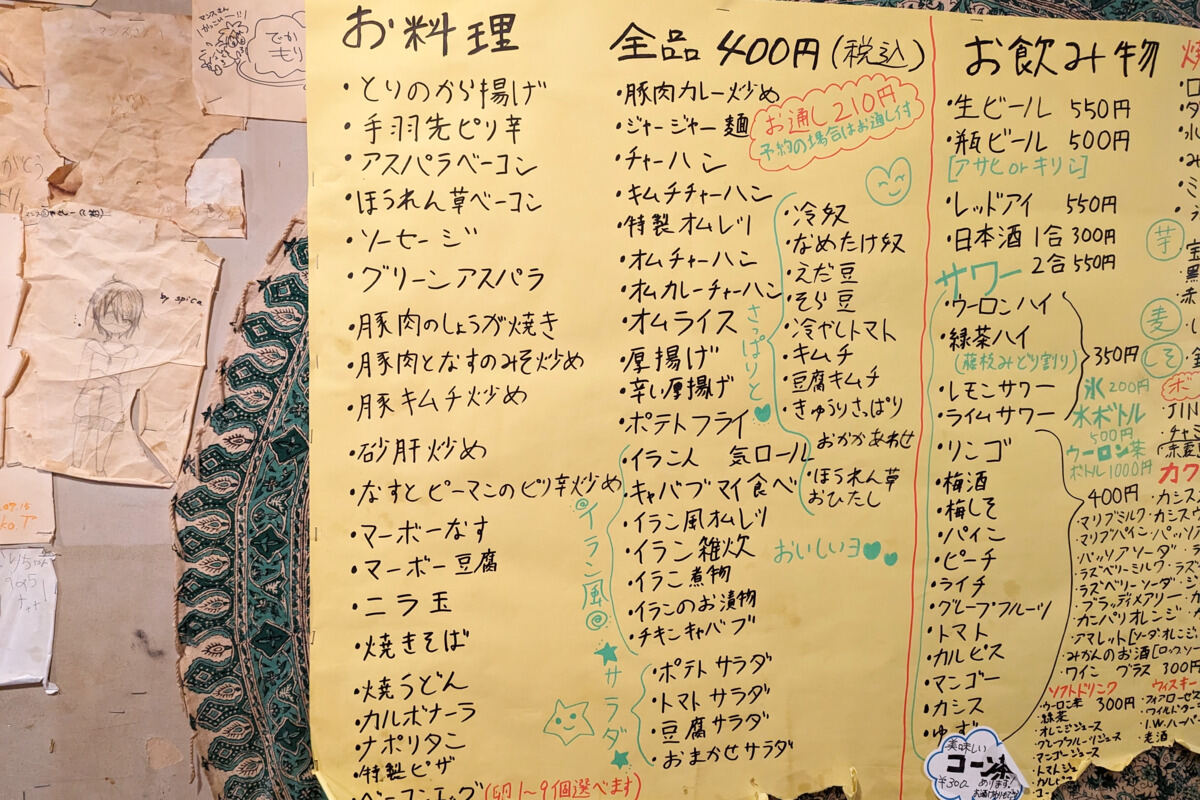 お料理
・とりのから揚げ
・手羽先ピリ辛
・アスパラベーコン
・ほうれん草ベーコン
・ソーセージ
・グリーンアスパラ
・豚肉のしょうが焼き
・豚肉となすのみそ炒め
・豚キムチ炒め
・砂肝炒め
・なすとピーマンのピリ辛炒め
・マーボーなす
・マーボー豆腐
・ニラ玉
・焼きそば
・焼うどん
・カルボナーラ
・ナポリタン
・特製ピザ
・ベーコンエッグ(卵1〜9個選べます)
全品 400円(税込)
・豚肉カレー炒め
・ジャージャー麺
・チャーハン
・キムチチャーハン
・特製オムレツ
・オムチャーハン
・オムカレーチャーハン
・オムライス
・厚揚げ
・辛い厚揚げ
・ポテトフライ
お通し210円
予約の場合はお通し付
さっぱりと
・冷奴
・なめたけ奴
・えだ豆
・そら豆
・冷やしトマト
・キムチ
・豆腐キムチ
・きゅうりさっぱり
おかかあわせ
・ほうれん草
おひたし
イラン風
・イラン人 気ロール
・キャバブマイ食べ
・イラン風オムレツ
・イラン雑炊
・イラン煮物
・イランのお漬物
・チキンキャバブ
おいしいヨ
★サラダ★
・ポテトサラダ
・トマトサラダ
・豆腐サラダ
・おまかせサラダ
お飲み物
・生ビール 550円
・瓶ビール 500円
[アサヒorキリン]
・レッドアイ 550円
・日本酒 1合 300円
2合 550円
サワー
・ウーロンハイ
・緑茶ハイ
(藤枝みどり割り)
・レモンサワー
・ライムサワー
350円
・リンゴ
・梅酒
・梅しそ
・パイン
・ピーチ
・ライチ
・グレープフルーツ
・トマト
・カルピス
・マンゴー
・カシス
・ゆず
400円
美味しい
コーン茶
¥300
あります!
芋
麦
しそ
氷 200円
水ボトル
500円
ウーロン茶
ボトル1000円
・マリブミルク
・マリブパイン
・パッソアソーダ
・ラズベリーミルク
・ラズベリーソーダ
・ブラッディメアリー
・カンパリオレンジ
・アマレット[ソーダ・オレンジ
・みかんのお酒[ロック
・ワイン グラス 300円
ソフトドリンク
300円
・ウーロン茶
・緑茶
・オレンジジュース
・グレープフルーツジュース
・マンゴージュース
・トマトジュース
・カルピス
ウィスキー
・フォアローゼス
・I.W.ハーパー
・老酒
by spica